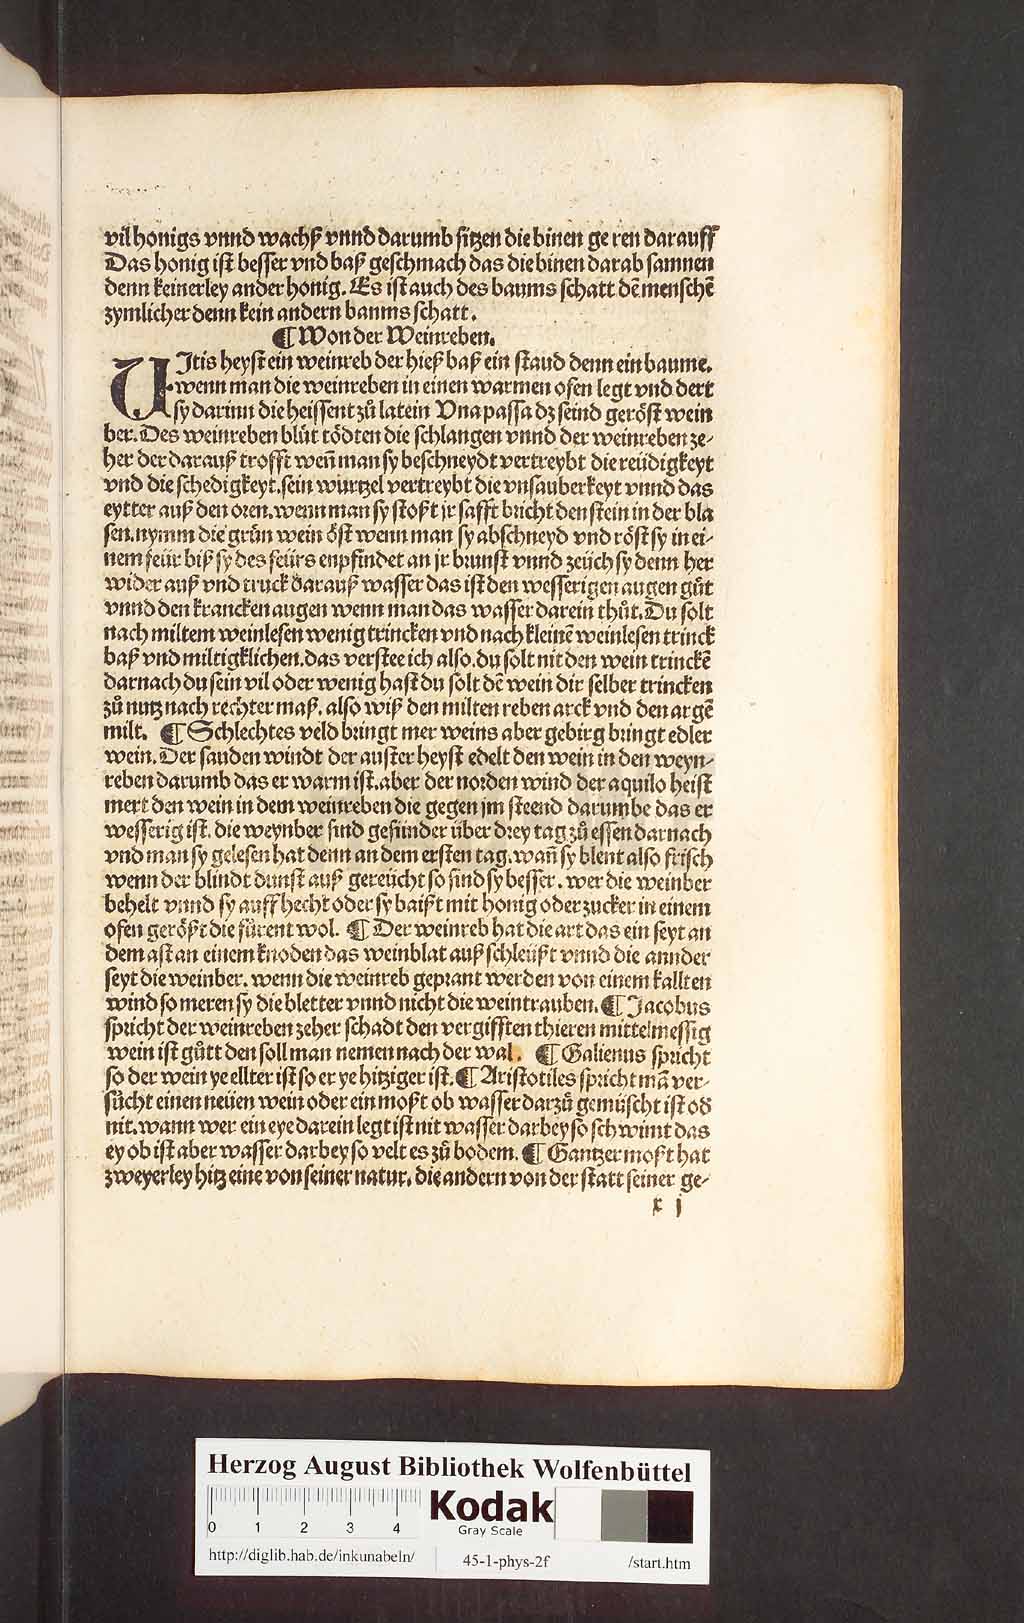 vil honigs vnnd wachß vnnd darumb sitzen die binen ge ren darauff
Das honig ist besser vnd baß geschmach das die binen darab samnen
denn keinerley ander honig. Es ist auch des baums schatt dē menschē
zymlicher denn kein andern banms schatt.
¶ Won der Weinreben.
UJtis heyst ein weinreb der hieß baß ein staud denn ein baume.
wenn man die weinreben in einen warmen ofen legt vnd dert
sy darinn die heissent zů latein Vna passa dz seind geröst wein
ber. Des weinreben blůt tödten die schlangen vnnd der weinreben ze-
her der darauß trofft weñ man sy beschneydt vertreybt die reüdigkeyt
vnd die schedigkeyt. sein wurtzel vertreybt die vnsauberkeyt vnnd das
eytter auß den oren. wenn man sy stoßt jr safft bricht den stein in der bla
sen. nymm die grůn wein öst wenn man sy abschneyd vnd röst sy in ei-
nem feür biß sy des feürs enpfindet an jr brunst vnnd zeüch sy denn her
wider auß vnd truck darauß wasser das ist den wesserigen augen gůt
vnnd den krancken augen wenn man das wasser darein thůt. Du solt
nach miltem weinlesen wenig trincken vnd nach kleinē weinlesen trinck
baß vnd miltigklichen. das verstee ich also. du solt nit den wein trinckē
darnach du sein vil oder wenig hast du solt dē wein dir selber trincken
zů nutz nach rechter maß. also wiß den milten reben arck vnd den argē
milt. ¶ Schlechtes veld bringt mer weins aber gebirg bringt edler
wein. Der sauden windt der auster heyst edelt den wein in den weyn-
reben darumb das er warm ist. aber der norden wind der aquilo heist
mert den wein in dem weinreben die gegen jm steend darumbe das er
wesserig ist. die weynber sind gesünder über drey tag zů essen darnach
vnd man sy gelesen hat denn an dem ersten tag. wañ sy blent also frisch
wenn der blindt dunst auß gereücht so sind sy besser. wer die weinber
behelt vnnd sy auff hecht oder sy baißt mit honig oder zucker in einem
ofen geröst die fůrent wol. ¶ Der weinreb hat die art das ein seyt an
dem ast an einem knoden das weinblat auß schleüßt vnnd die annder
seyt die weinber. wenn die weinreb geprant werden von einem kallten
wind so meren sy die bletter vnnd nicht die weintrauben. ¶ Jacobus
spricht der weinreben zeher schadt den vergifften thieren mittelmessig
wein ist gůtt den soll man nemen nach der wal. ¶ Galienus spricht
so der wein ye ellter ist so er ye hitziger ist. ¶ Aristotiles spricht mā ver-
sůcht einen neüen wein oder ein moßt ob wasser darzů gemüscht ist od
nit. wann wer ein eye darein legt ist nit wasser darbey so schwimt das
ey ob ist aber wasser darbey so velt es zů bodem. ¶ Gantzer moßt hat
zweyerley hitz eine von seiner natur. die andern von der statt seiner ge-
x j
Herzog August Bibliothek Wolfenbüttel
0 1 2 3 4
Kodak
Gray Scale
http://diglib.hab.de/inkunabeln/ 45-1-phys-2f /start.htm